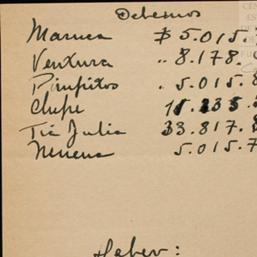 Debemos
Maruca $ 5.015.
Ventura .. 8.178.
Pimpitos . 5.015.8
Chepe 15.235.
Tia Julia 33.817.8
Nenena 5.015.7
Haber: